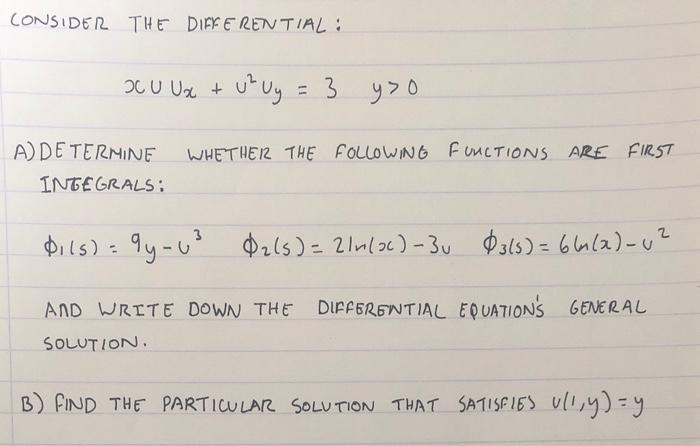 CONSIDER THE DIFFERENTIAL:
xU Ux + U² Uy = 3 y>0
A) DETERMINE WHETHER THE FOLLOWING FUNCTIONS ARE FIRST
INTEGRALS:
Φ₁(s) = 9y-u³ Φ₂(s) = 2ln(x)-3u Φ3(s) = 6ln(x)-u²
AND WRITE DOWN THE DIFFERENTIAL EQUATION'S GENERAL
SOLUTION.
B) FIND THE PARTICULAR SOLUTION THAT SATISFIES U(1,y)=y